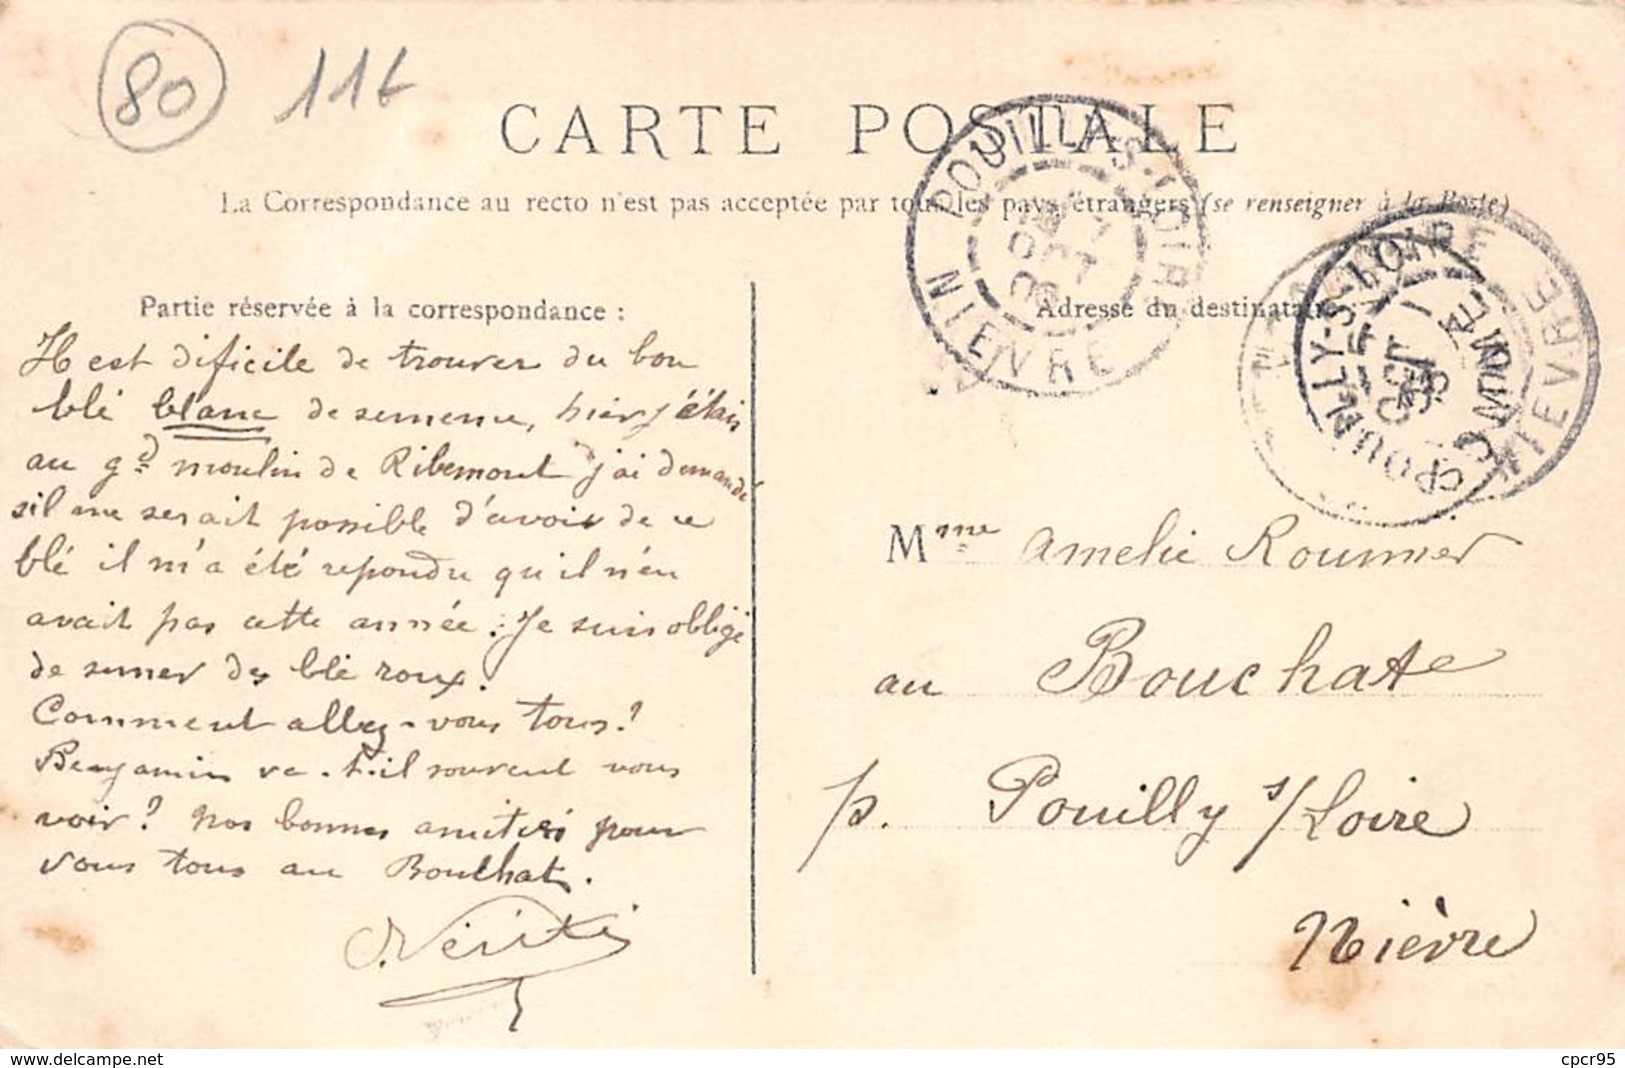 80 116
CARTE POSTALE
La Correspondance au recto n'est pas acceptée par tous les pays étrangers (se renseigner à la Poste)
POUILLY-S-LOIRE
NIEVRE
POUILLY-S-LOIRE
NIEVRE
Partie réservée à la correspondance :
Il est dificile de trouver du bon
blé blanc de semence, hier j'étais
au gd moulin de Ribemont j'ai demandé
s'il me serait possible d'avoir de ce
blé il m'a été repondu qu'il n'en
avait pas cette année. Je suis obligé
de semer des blé roux.
Comment allez-vous tous?
Benjamin va-t-il souvent vous
voir? Nos bonnes amitiés pour
vous tous au Bouchat.
Adresse du destinataire
Mme Amelie Roumier
au Bouchate
p. Pouilly s/Loire
Nièvre
www.delcampe.net
cpcr95